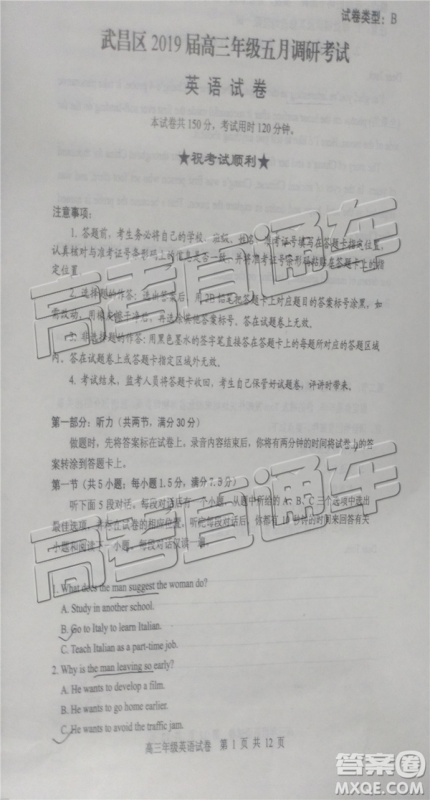 试卷类型：B
武昌区 2019 届高三年级五月调研考试
英语试卷
本试卷共 150 分，考试用时 120 分钟。
★祝考试顺利★
注意事项：
1. 答题前，考生务必将自己的学校、班级、姓名、准考证号填写在答题卡指定位置，
认真核对与准考证号条形码上的信息是否一致，并将准考证号条形码粘贴在答题卡上的指
定位置。
2. 选择题的作答：选出答案后，用 2B 铅笔把答题卡上对应题目的答案标号涂黑，如
需改动，用橡皮擦干净后，再选涂其他答案标号。答在试题卷上无效。
3. 非选择题的作答：用黑色墨水的签字笔直接答在答题卡上的每题所对应的答题区域
内。答在试题卷上或答题卡指定区域外无效。
4. 考试结束，监考人员将答题卡收回，考生自己保管好试题卷，评讲时带来。
第一部分：听力（共两节，满分 30 分）
做题时，先将答案标在试卷上，录音内容结束后，你将有两分钟的时间将试卷上的答
案转涂到答题卡上。
第一节（共 5 小题；每小题 1.5 分，满分 7.5 分）
听下面 5 段对话，每段对话后有一个小题，从题中所给的 A、B、C 三个选项中选出
最佳选项，并标在试卷的相应位置。听完每段对话后，你都有 10 秒钟的时间来回答有关
小题和阅读下一小题。每段对话仅读一遍。
1. What does the man suggest the woman do?
A. Study in another school.
B. Go to Italy to learn Italian.
C. Teach Italian as a part-time job.
2. Why is the man leaving so early?
A. He wants to develop a film.
B. He wants to go home earlier.
C. He wants to avoid the traffic jam.
高三年级英语试卷 第 1 页 共 12 页
高考直通车
高考直通车
作业帮
MXEQE.COM